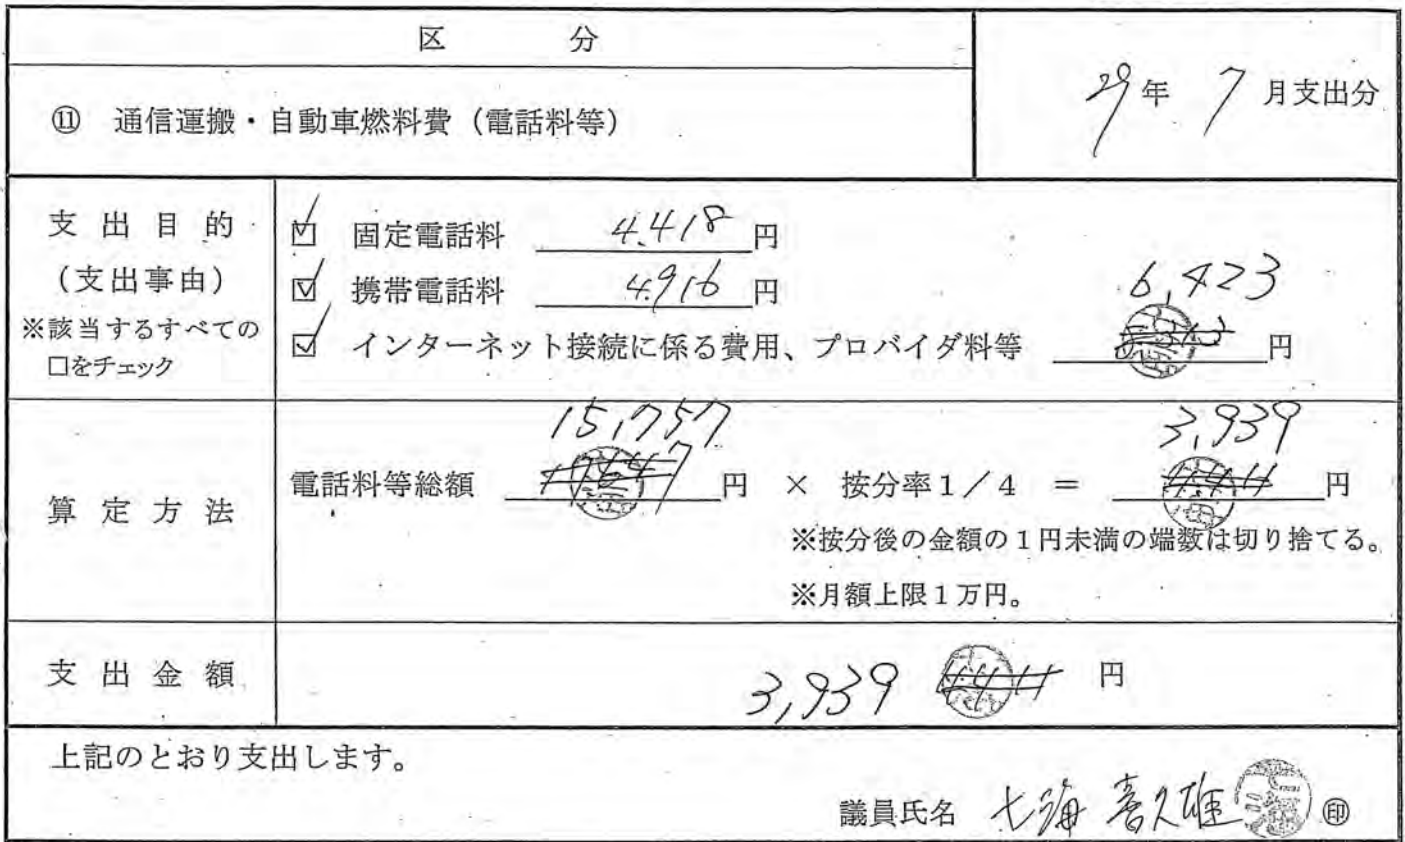 区 分
⑪ 通信運搬・自動車燃料費（電話料等）
29年 7月支出分
支出目的
（支出事由）
※該当するすべての
□をチェック
☑ 固定電話料 4,418円
☑ 携帯電話料 4,916円
6,423
☑ インターネット接続に係る費用、プロバイダ料等 円
算定方法
15,757 3,939
電話料等総額 円 × 按分率1／4 ＝ 円
※按分後の金額の1円未満の端数は切り捨てる。
※月額上限1万円。
支出金額 3,939 円
上記のとおり支出します。
議員氏名 七海 喜久雄 ㊞